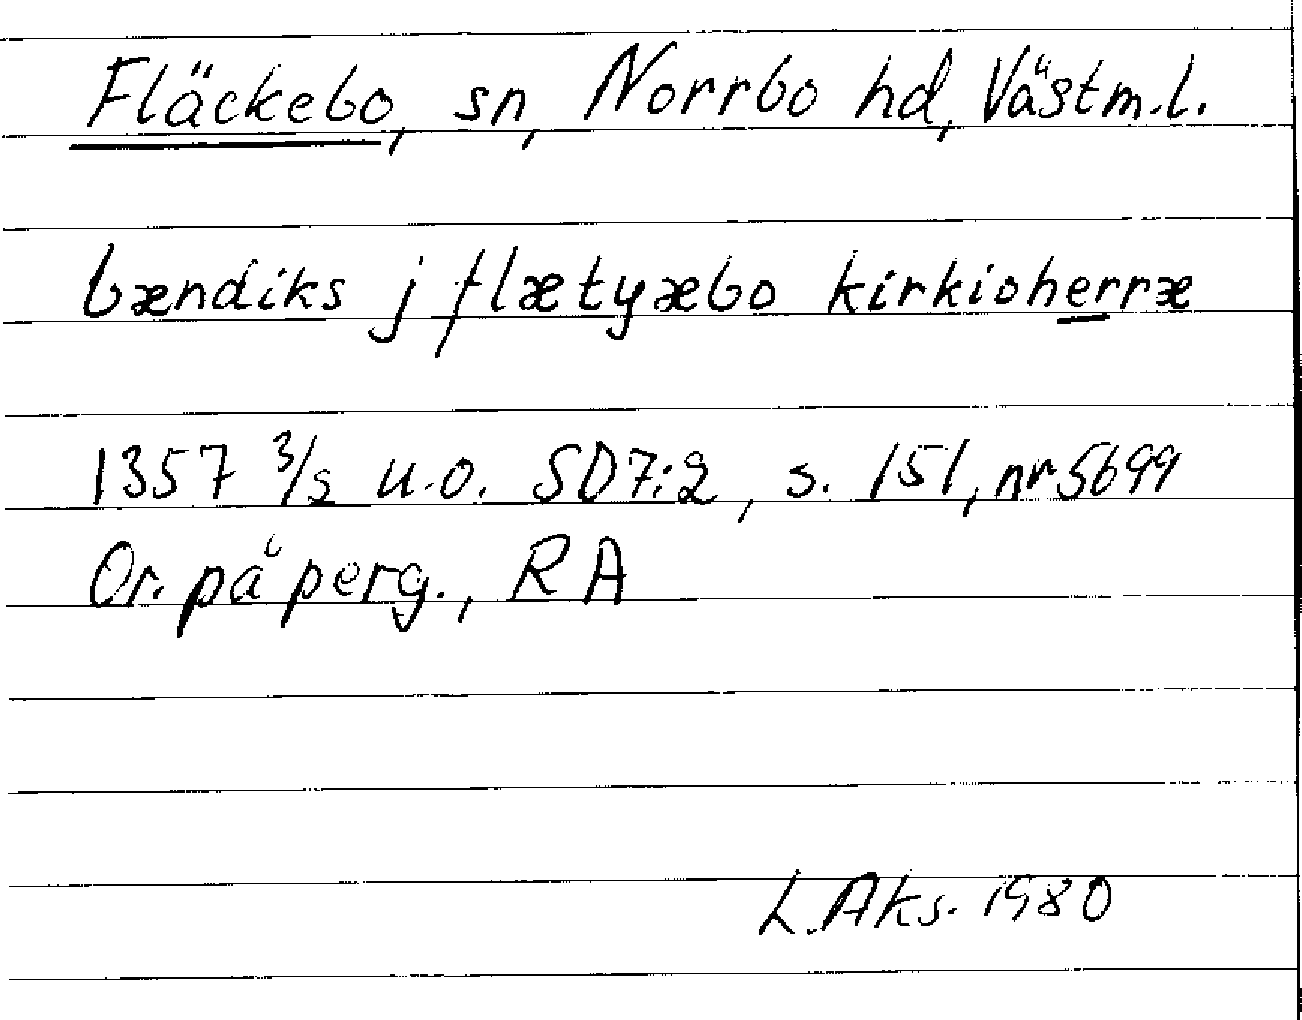 Fläckebo, sn, Norrbo hd, Västm.l.
bændiks j flætyæbo kirkioherræ
1357 3/2 u.o. SD7:2, s. 151, nr 5699
Or. på perg., RA
L.Aks. 1980